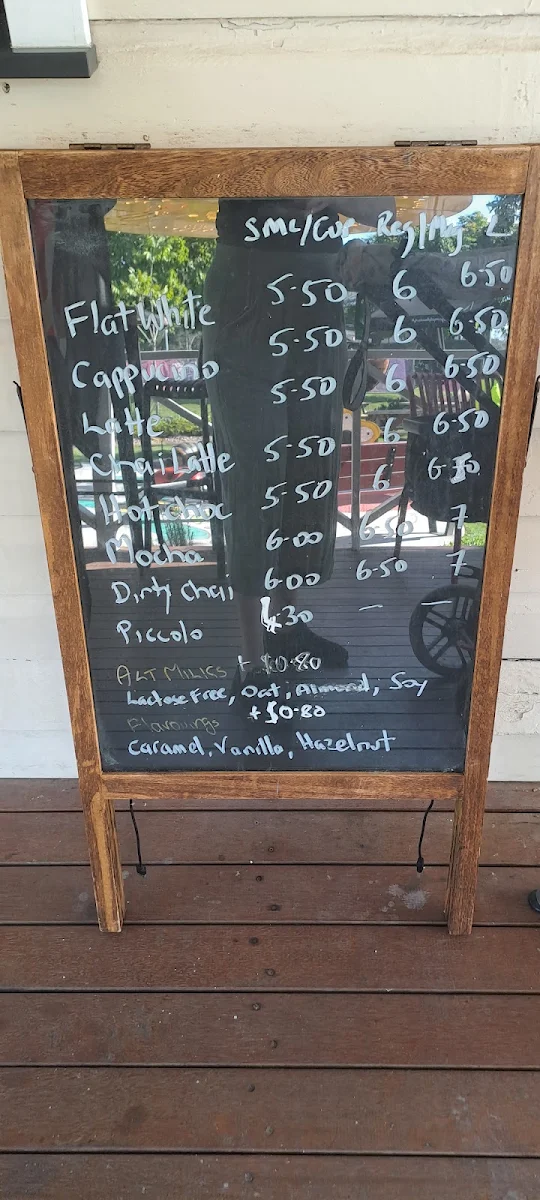 SML/Cup Reg/Mug L
Flat White 5-50 6 6-50
Cappucino 5-50 6 6-50
Latte 5-50 6 6-50
Chai Latte 5-50 6 6-50
Hot choc 5-50 6 6-50
Mocha 6-00 6-50 7
Dirty Chai 6-00 6-50 7
Piccolo 4-30 — —
ALT MILKS + $0-80
Lactose Free, Oat, Almond, Soy
Flavourings + $0-80
Caramel, Vanilla, Hazelnut